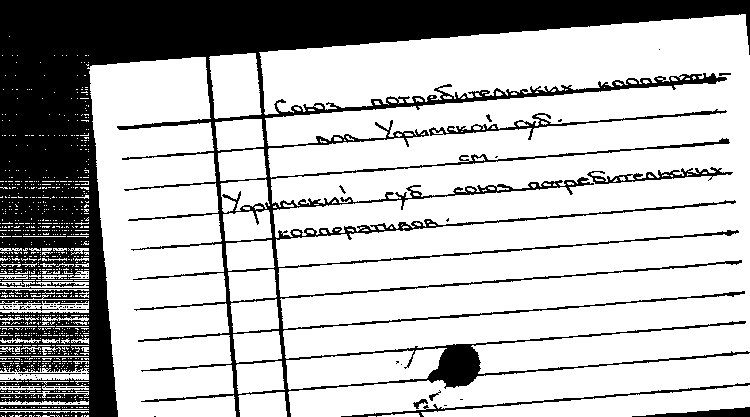 Союз потребительских кооперати-
вов Уфимской губ.
см.
Уфимский губ союз потребительских
кооперативов.